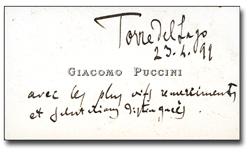 Torre del Lago
23.4.99
GIACOMO PUCCINI
avec les plus vifs remerciments
et salutations distinguées